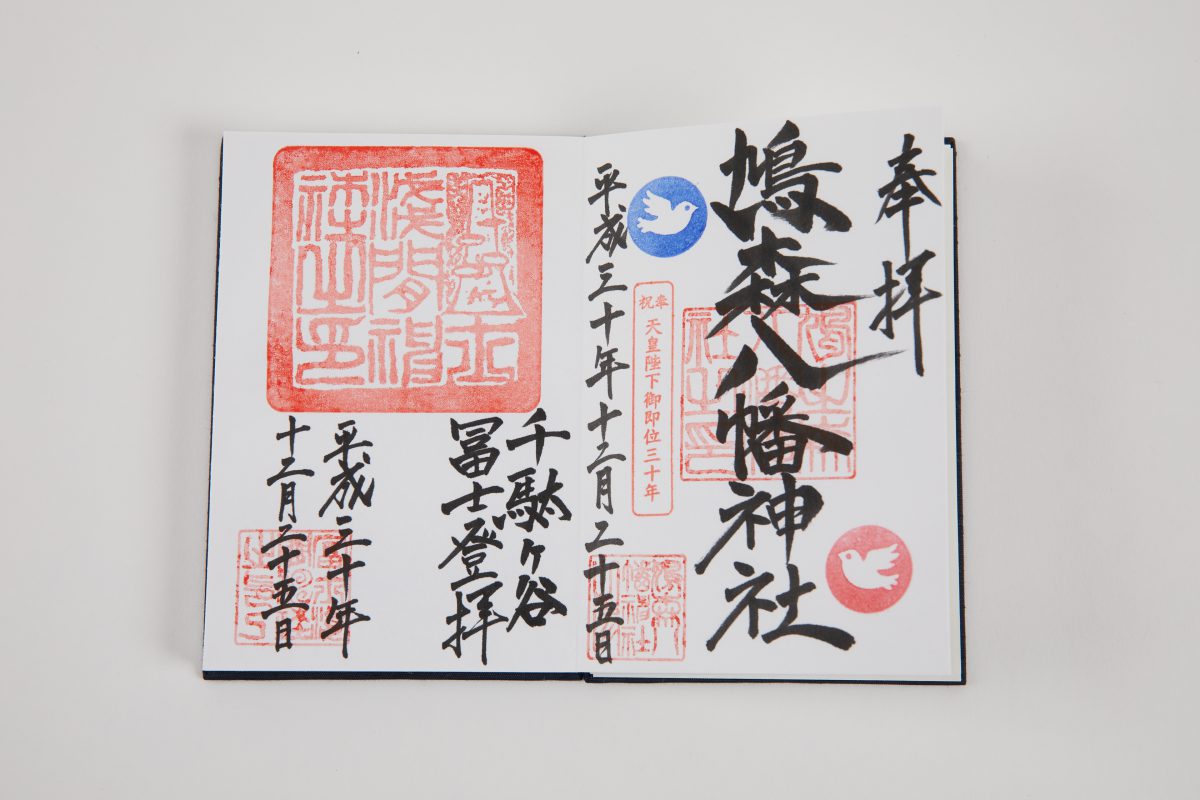 奉拝
鳩森八幡神社
奉祝
天皇陛下御即位三十年
平成三十年十二月二十五日
淺間神
社之印
千駄ヶ谷
冨士登拝
平成三十年
十二月二十五日